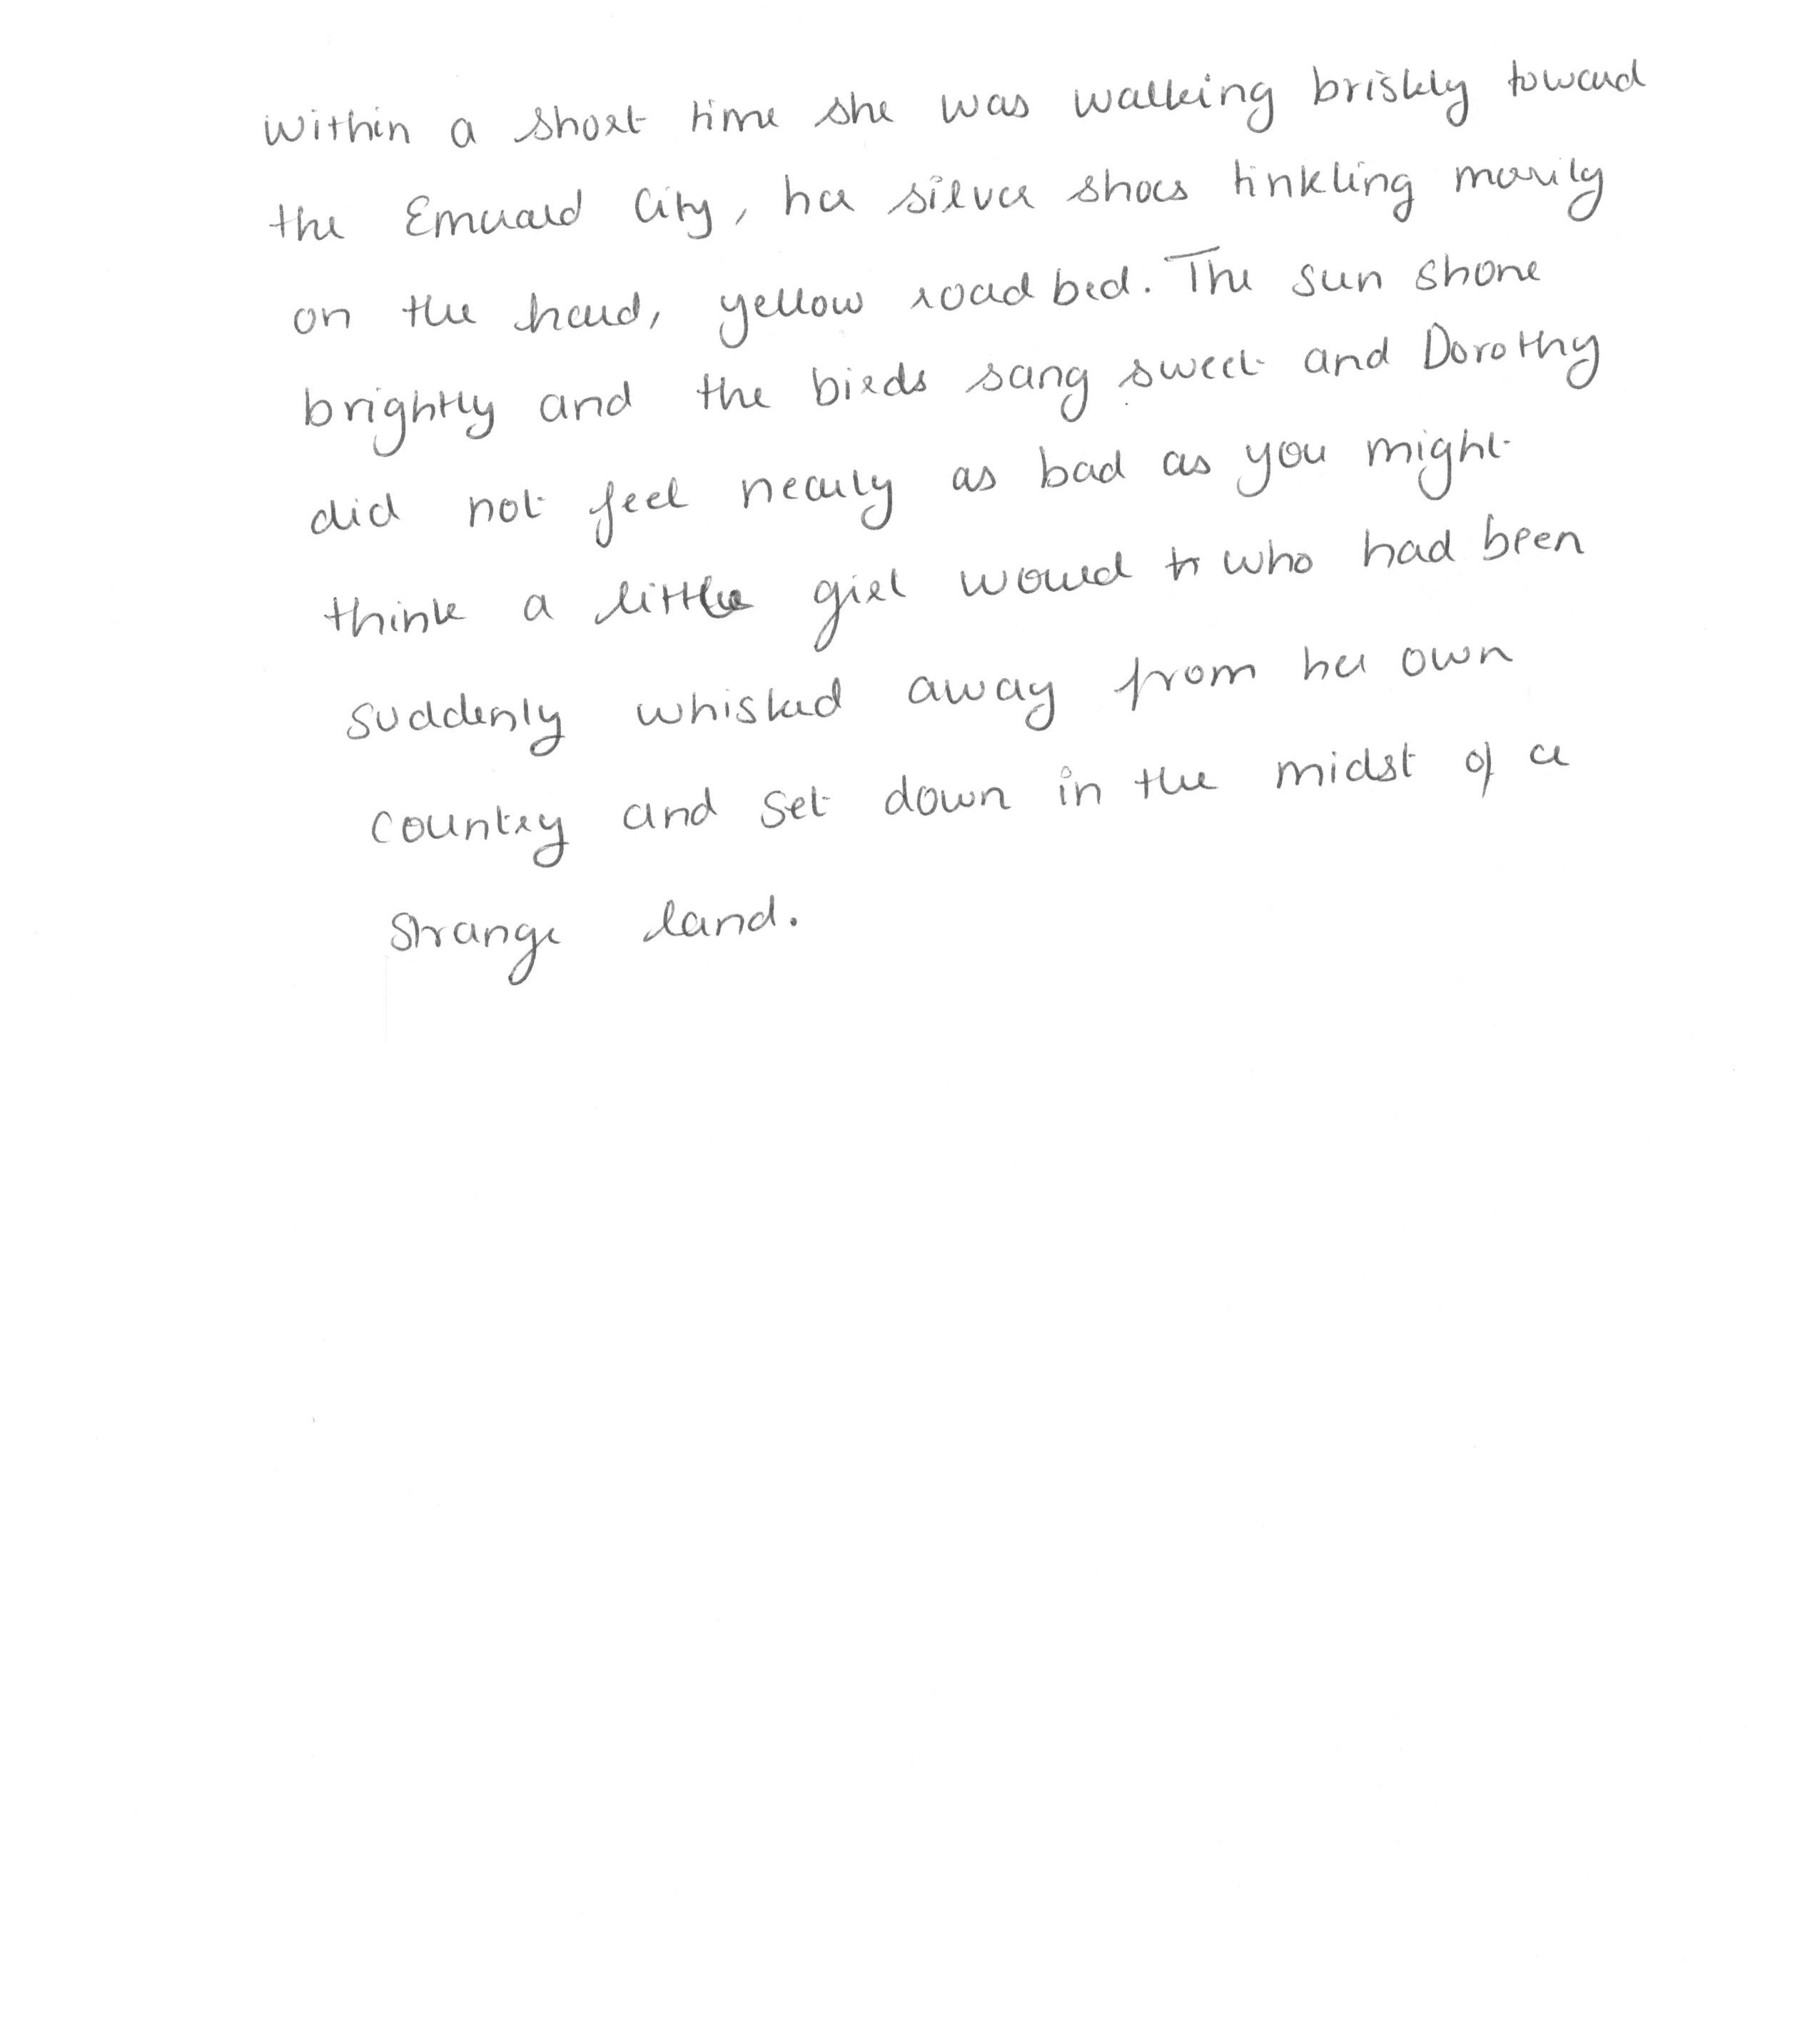 Within a short time she was walking briskly toward
the Emerald City, her silver shoes tinkling merrily
on the hard, yellow roadbed. The sun shone
brightly and the birds sang sweet and Dorothy
did not feel nearly as bad as you might
think a little girl would tr who had been
suddenly whisked away from her own
country and set down in the midst of a
strange land.